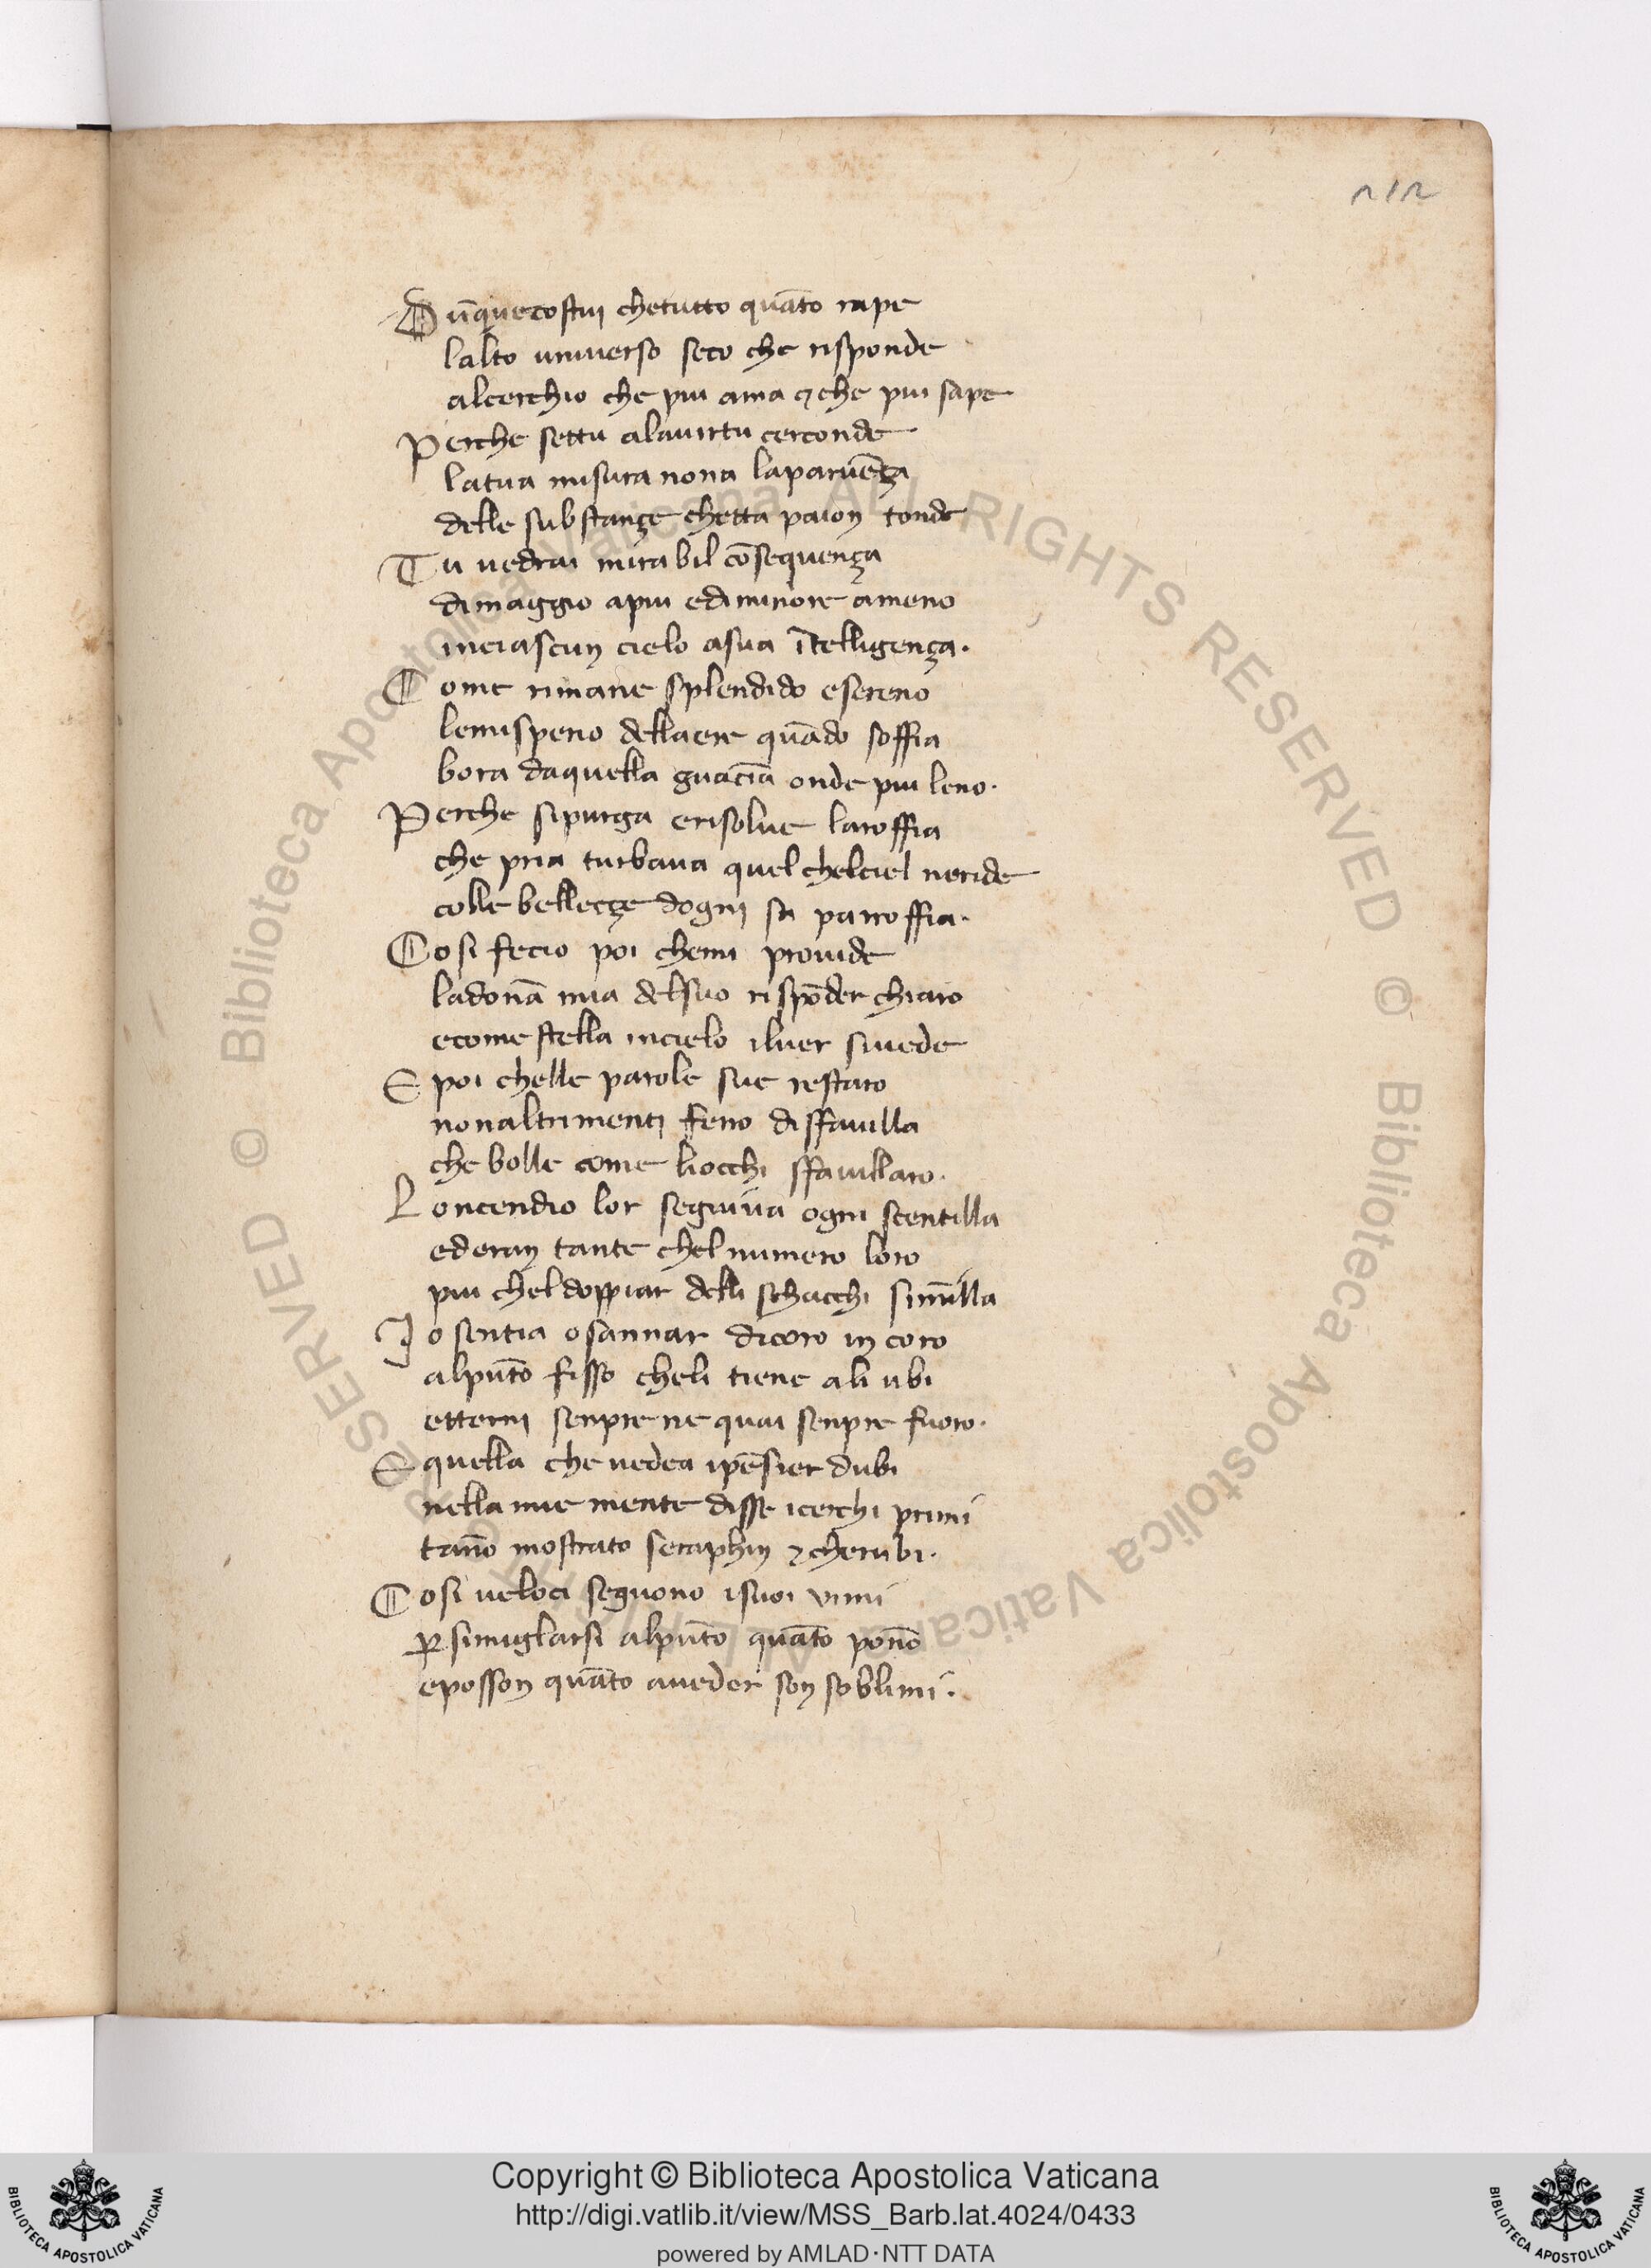 212
Dūque costui chetutto quāto rape
lalto universo seco che risponde
alcerchio che piu ama ⁊ che piu sape
Perche settu alauirtu cerconde
latua misura nona laparuēça
delle substançe chetta paion tonde
Tu uedrai mirabil cōsequença
dimaggio apiu ediminore ameno
inciascun cielo asua ītelligença.
Come rimane splendido esereno
lemisperio dellaere quādo soffia
bora daquella guācia onde piu leno.
Perche sipurga erisolue laroffia
che pria turbaua quel chelciel neride
colle belleçe dogni su parroffia.
Cosi fecio poi chemi prouide
ladonā mia delsuo rispōder chiaro
ecome stella incielo iluer siuede
E poi chelle parole sue restaro
nonaltrimenti ferro disfauilla
che bolle come liocchi sfauillaro.
Loncendio lor seguiua ogni scentilla
ederan tante chel numero loro
piu chel doppiar delli schacchi simīlla
Io sentia osannar dicoro in coro
alpūto fisso cheli tiene ali ubi
etterni senpre ne quai senpre fuoro.
E quella che uedea ipēsier dubi
nella mie mente disse icerchi primi
tāno mostrato seraphin ⁊ cherubi.
Cosi ueloci seguono isuoi uimi
ꝑ simiglarsi alpūto quāto ponō
eposson quāto aueder son soblimi.
Copyright © Biblioteca Apostolica Vaticana
http://digi.vatlib.it/view/MSS_Barb.lat.4024/0433
powered by AMLAD·NTT DATA
BIBLIOTECA APOSTOLICA VATICANA
BIBLIOTECA APOSTOLICA VATICANA
© Biblioteca Apostolica Vaticana ALL RIGHTS RESERVED
© Biblioteca Apostolica Vaticana ALL RIGHTS RESERVED